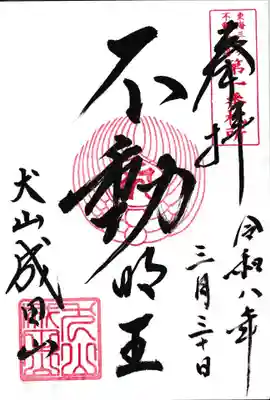 奉拝
令和八年
三月三十日
不動明王
犬山成田山